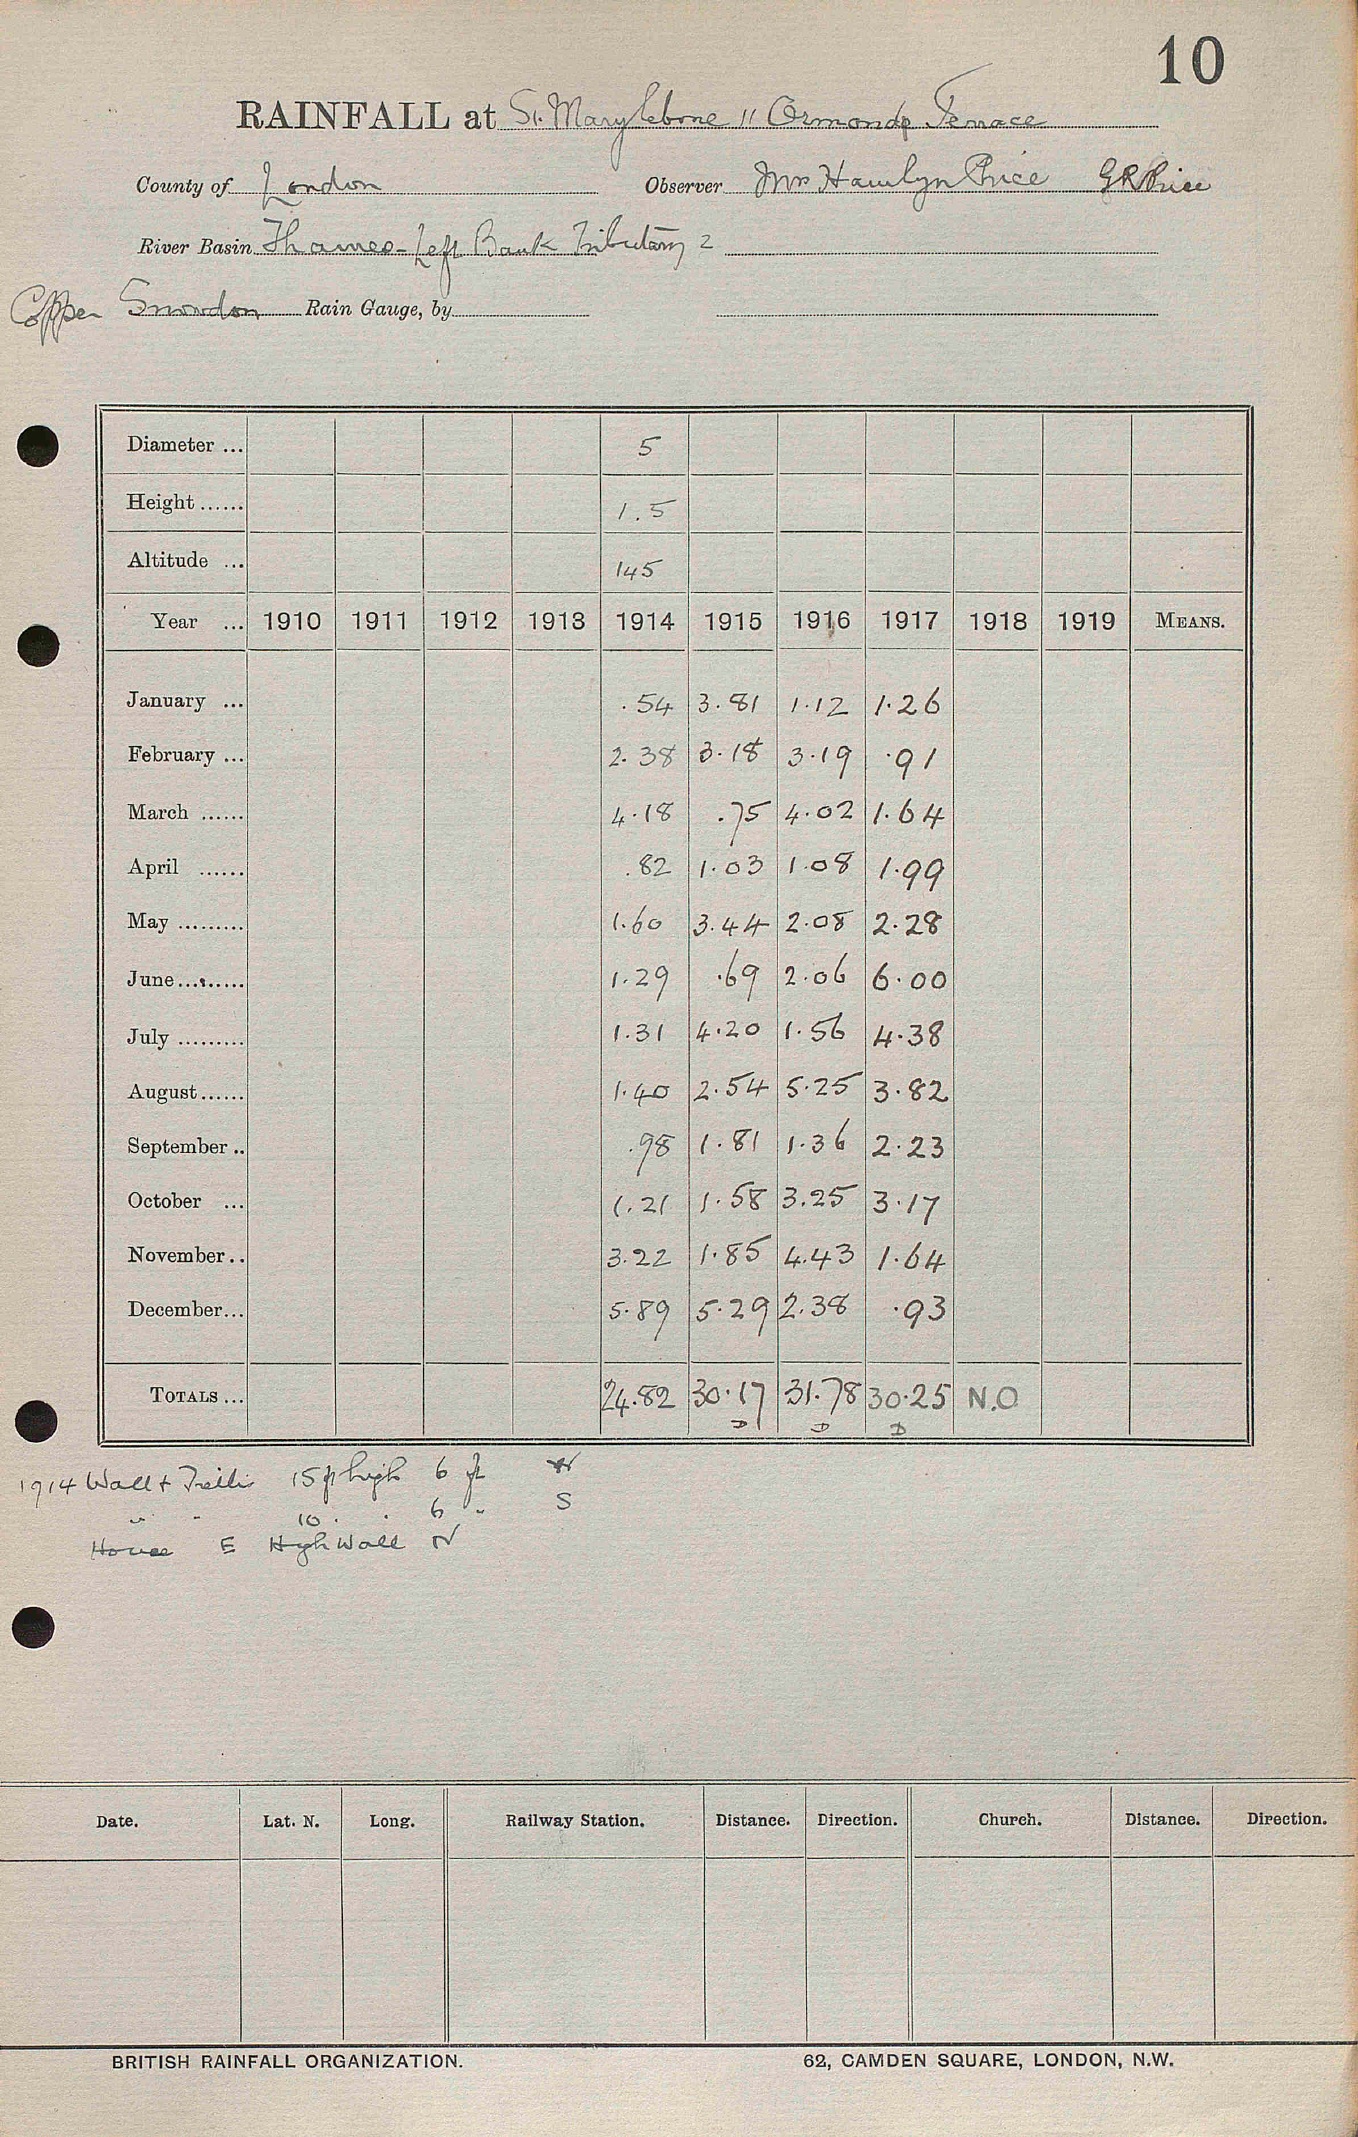 10
RAINFALL at St. Marylebone 11 Ormonde Terrace
County of London Observer Mrs Hamlyn Price G R Price
River Basin Thames - Left Bank Tributary 2
Copper Snowdon Rain Gauge, by
Diameter ... 5
Height ...... 1.5
Altitude ... 145
Year ... 1910 1911 1912 1913 1914 1915 1916 1917 1918 1919 MEANS.
January ... .54 3.81 1.12 1.26
February ... 2.38 3.18 3.19 .91
March ...... 4.18 .75 4.02 1.64
April ...... .82 1.03 1.08 1.99
May ......... 1.60 3.44 2.08 2.28
June......... 1.29 .69 2.06 6.00
July ......... 1.31 4.20 1.56 4.38
August...... 1.40 2.54 5.25 3.82
September .. .98 1.81 1.36 2.23
October ... 1.21 1.58 3.25 3.17
November.. 3.22 1.85 4.43 1.64
December... 5.89 5.29 2.38 .93
TOTALS ... 24.82 30.17 31.78 30.25 N.O
D D D
1914 Wall + Trellis 15 ft high 6 ft W
" " 10 . . 6 " S
House E High Wall N
Date. Lat. N. Long. Railway Station. Distance. Direction. Church. Distance. Direction.
BRITISH RAINFALL ORGANIZATION. 62, CAMDEN SQUARE, LONDON, N.W.